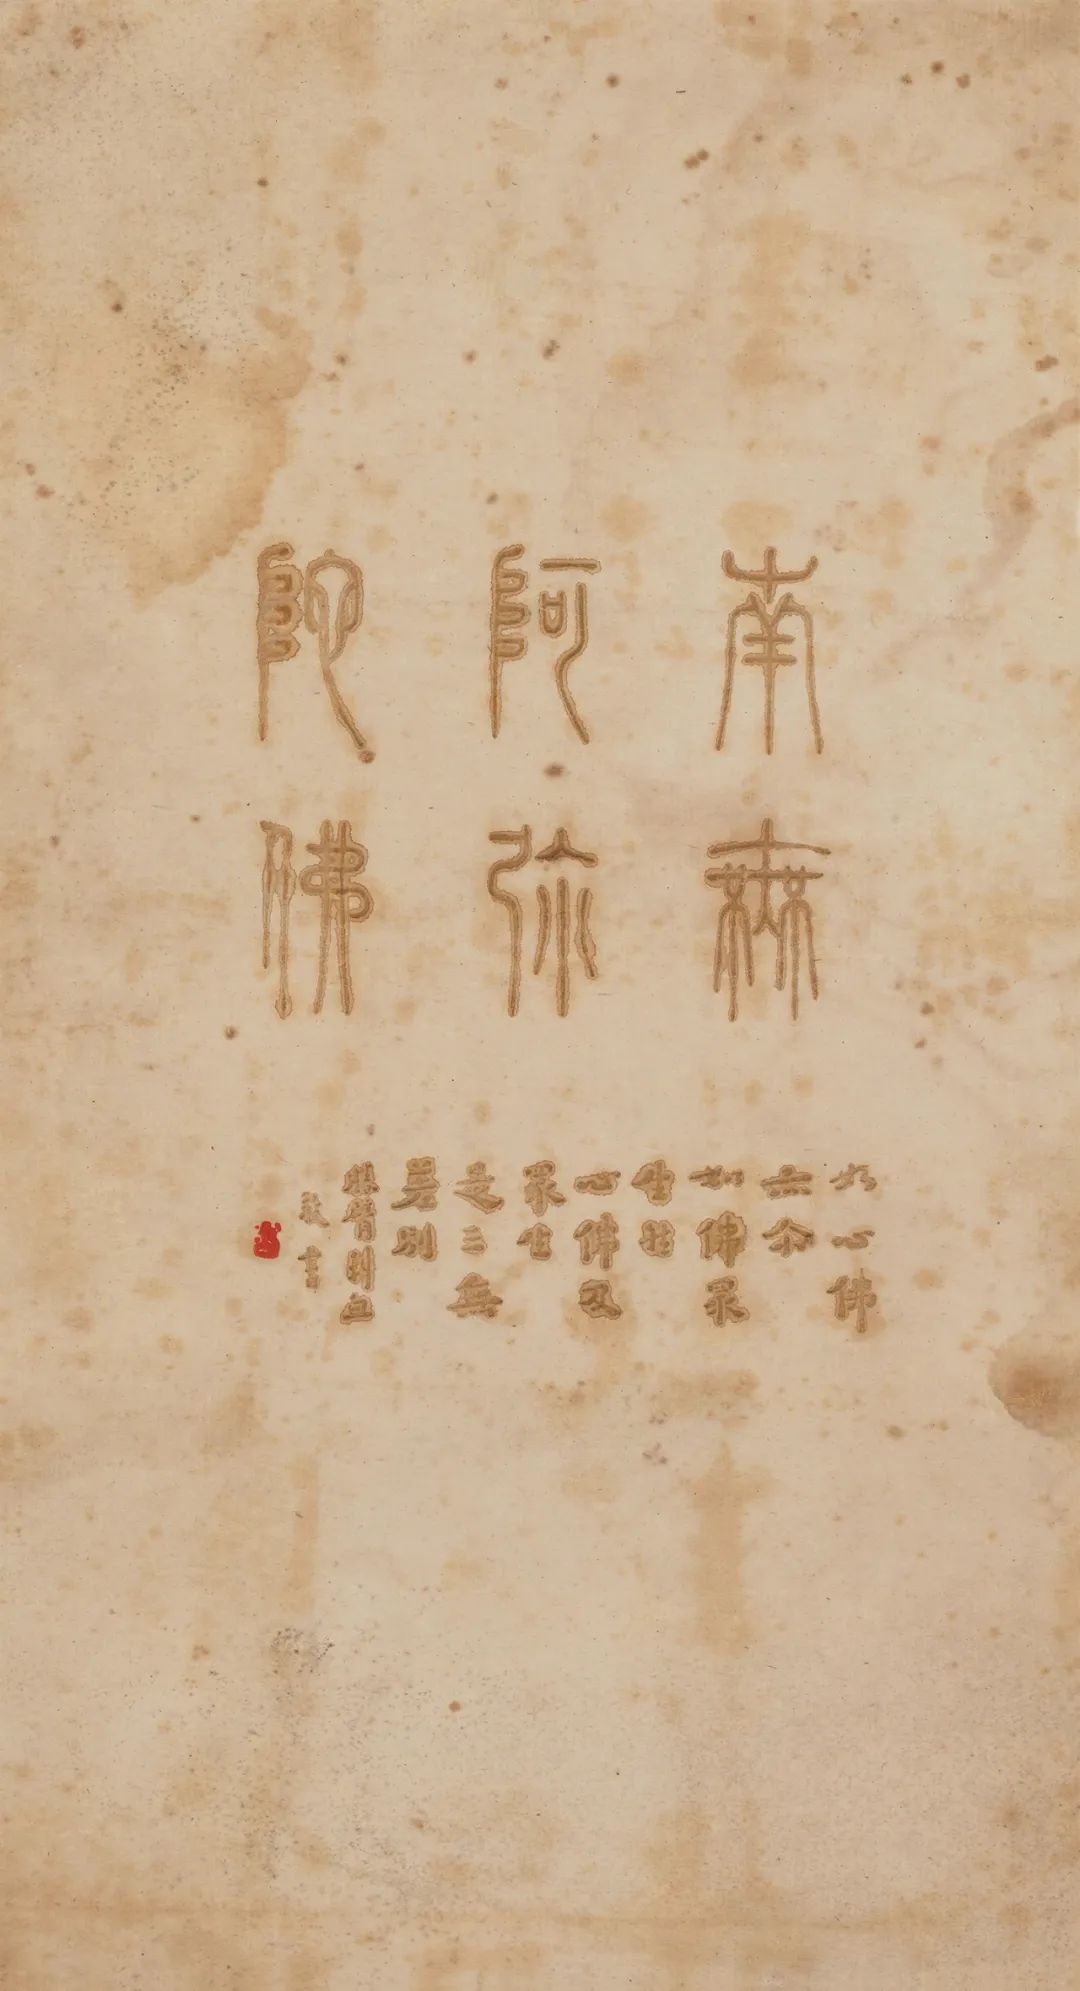 南無
阿弥
陀佛
如心佛
亦尒
如佛眾
生然
心佛及
眾生
是三無
差別
勝臂刺血
敬書